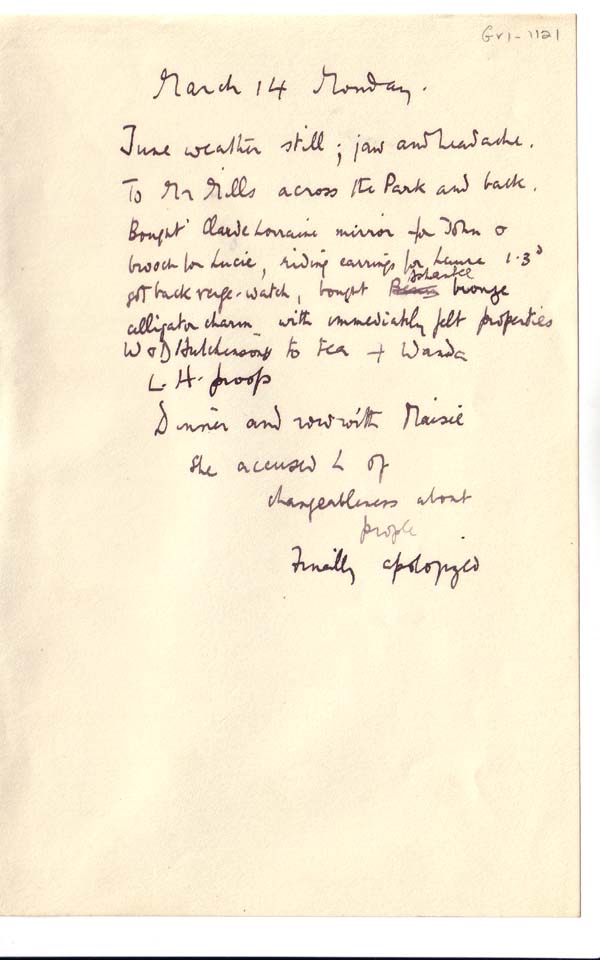 GV1-1121
March 14 Monday.
June weather still; jaw and headache.
To Mr Mills across the Park and back.
Bought Claude Lorraine mirror for John &
brooch for Lucie, riding earrings for Laura 1.3ᵈ
Ashantee
got back verge-watch, bought bronze
alligator charm with immediately felt properties
W & D Hutchinson to tea + Wanda
L. H. proofs
Dinner and row with Maisie
She accused L of
changeableness about
people
Finally apologized